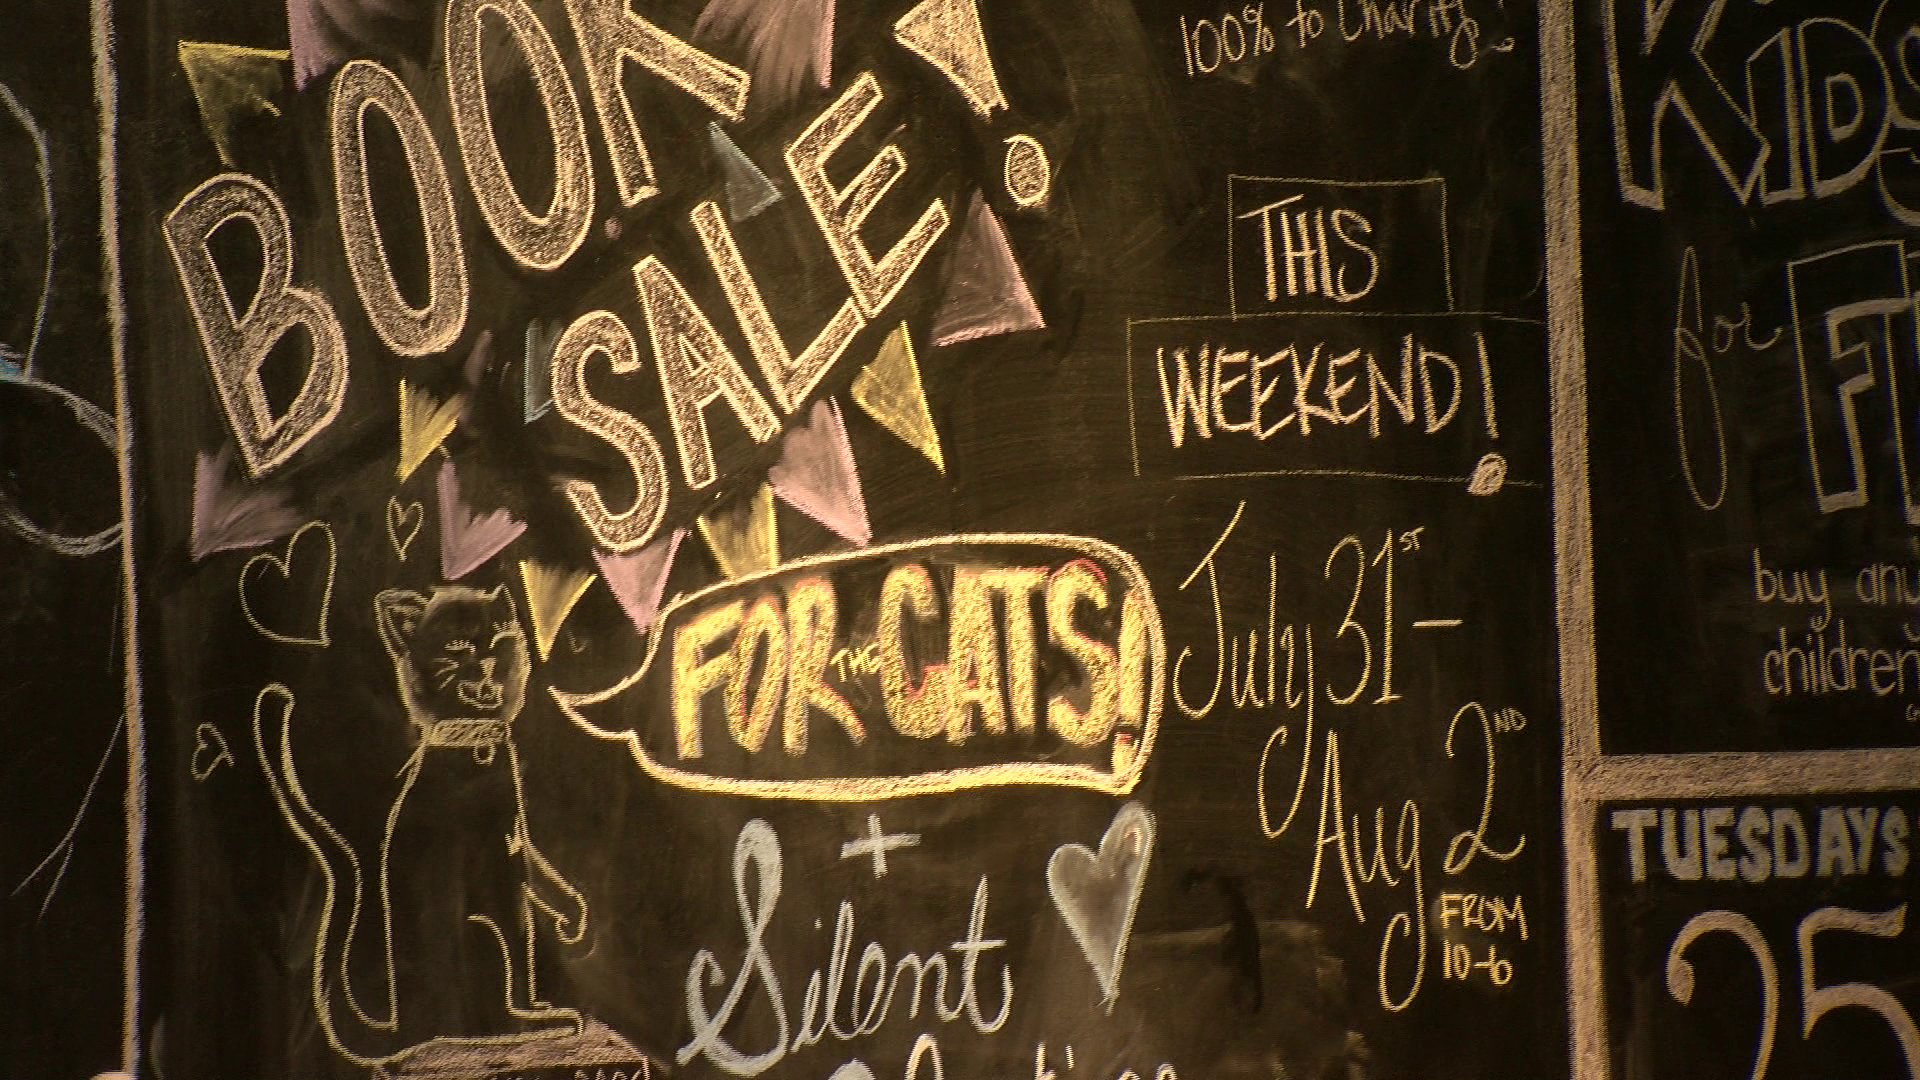 BOOK
SALE!
FOR THE CATS!
+
Silent
100% to Charity!
THIS
WEEKEND!
July 31ST -
Aug 2ND
FROM
10-6
KIDS
for
buy any
children
TUESDAYS
25